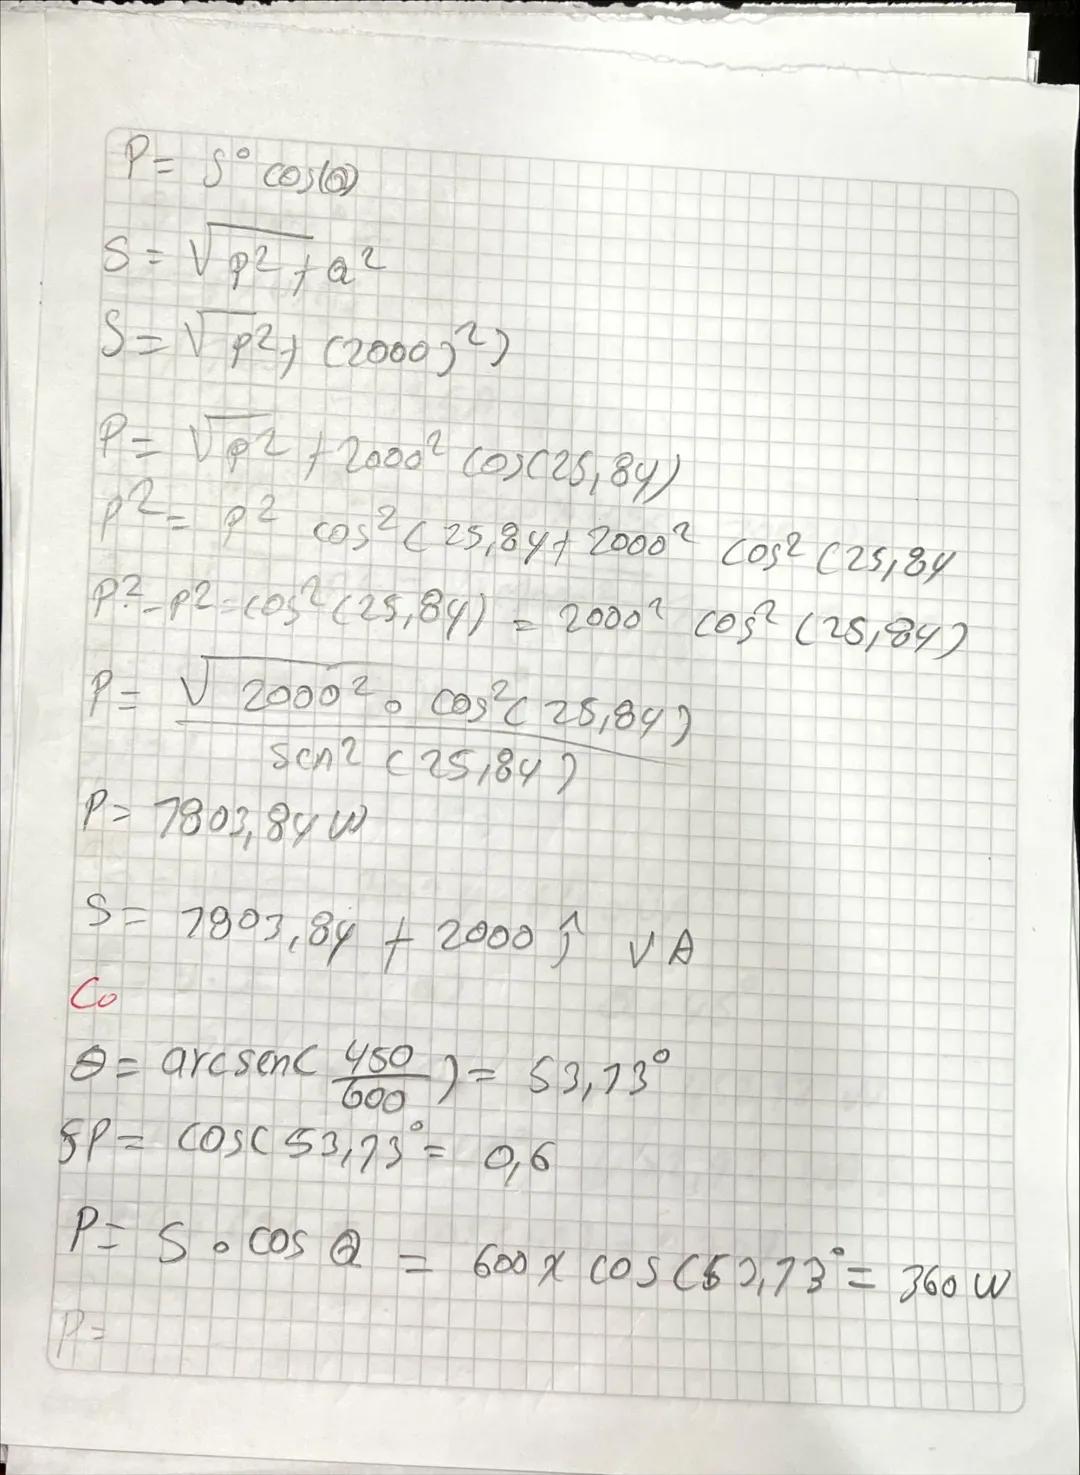 P= S° cos(θ)
S = √p²+Q²
S = √p²+ (2000)²)
P= √p² + 2000² cos(25,84)
p² = p² cos² (25,84 + 2000² cos² (25,84
p² - p² = cos² (25,84) = 2000² cos² (25,84)
P= √2000² • cos² (25,84) / sen² (25,84)
P= 7803,84 W
S= 7803,84 + 2000 ĵ VA
Co
θ = arcsen( 450/600 ) = 53,13°
fP= cos( 53,13° = 0,6
P= S • cos θ = 600 x cos (53,13° = 360 W
P=